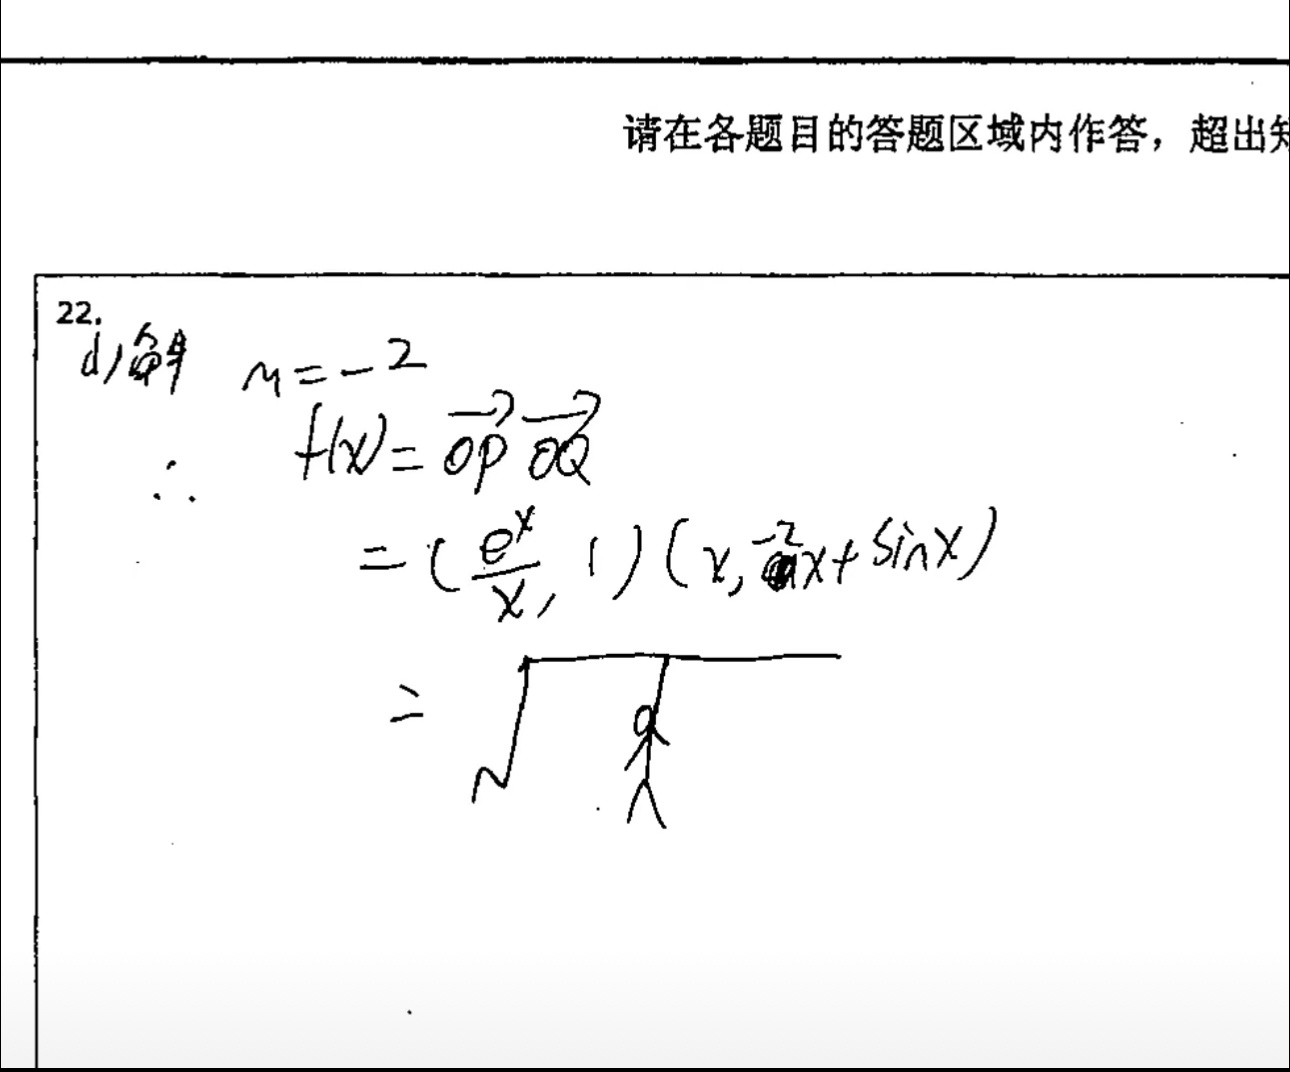 请在各题目的答题区域内作答，超出
22.
(1)解 m=-2
∴ f(x)=OP OQ
=(e^x/x, 1)(x, -2x+sinx)
=√